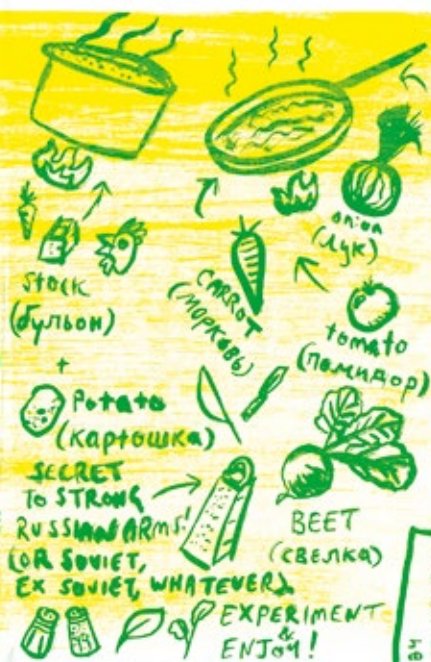 onion
(лук)
stock
(бульон)
CARROT
(МОРКОВЬ)
tomato
(помидор)
+
Potato
(картошка)
SECRET
TO STRONG
RUSSIAN ARMS!
(OR SOVIET,
EX SOVIET, WHATEVER).
BEET
(свелка)
EXPERIMENT
&
ENJOY!